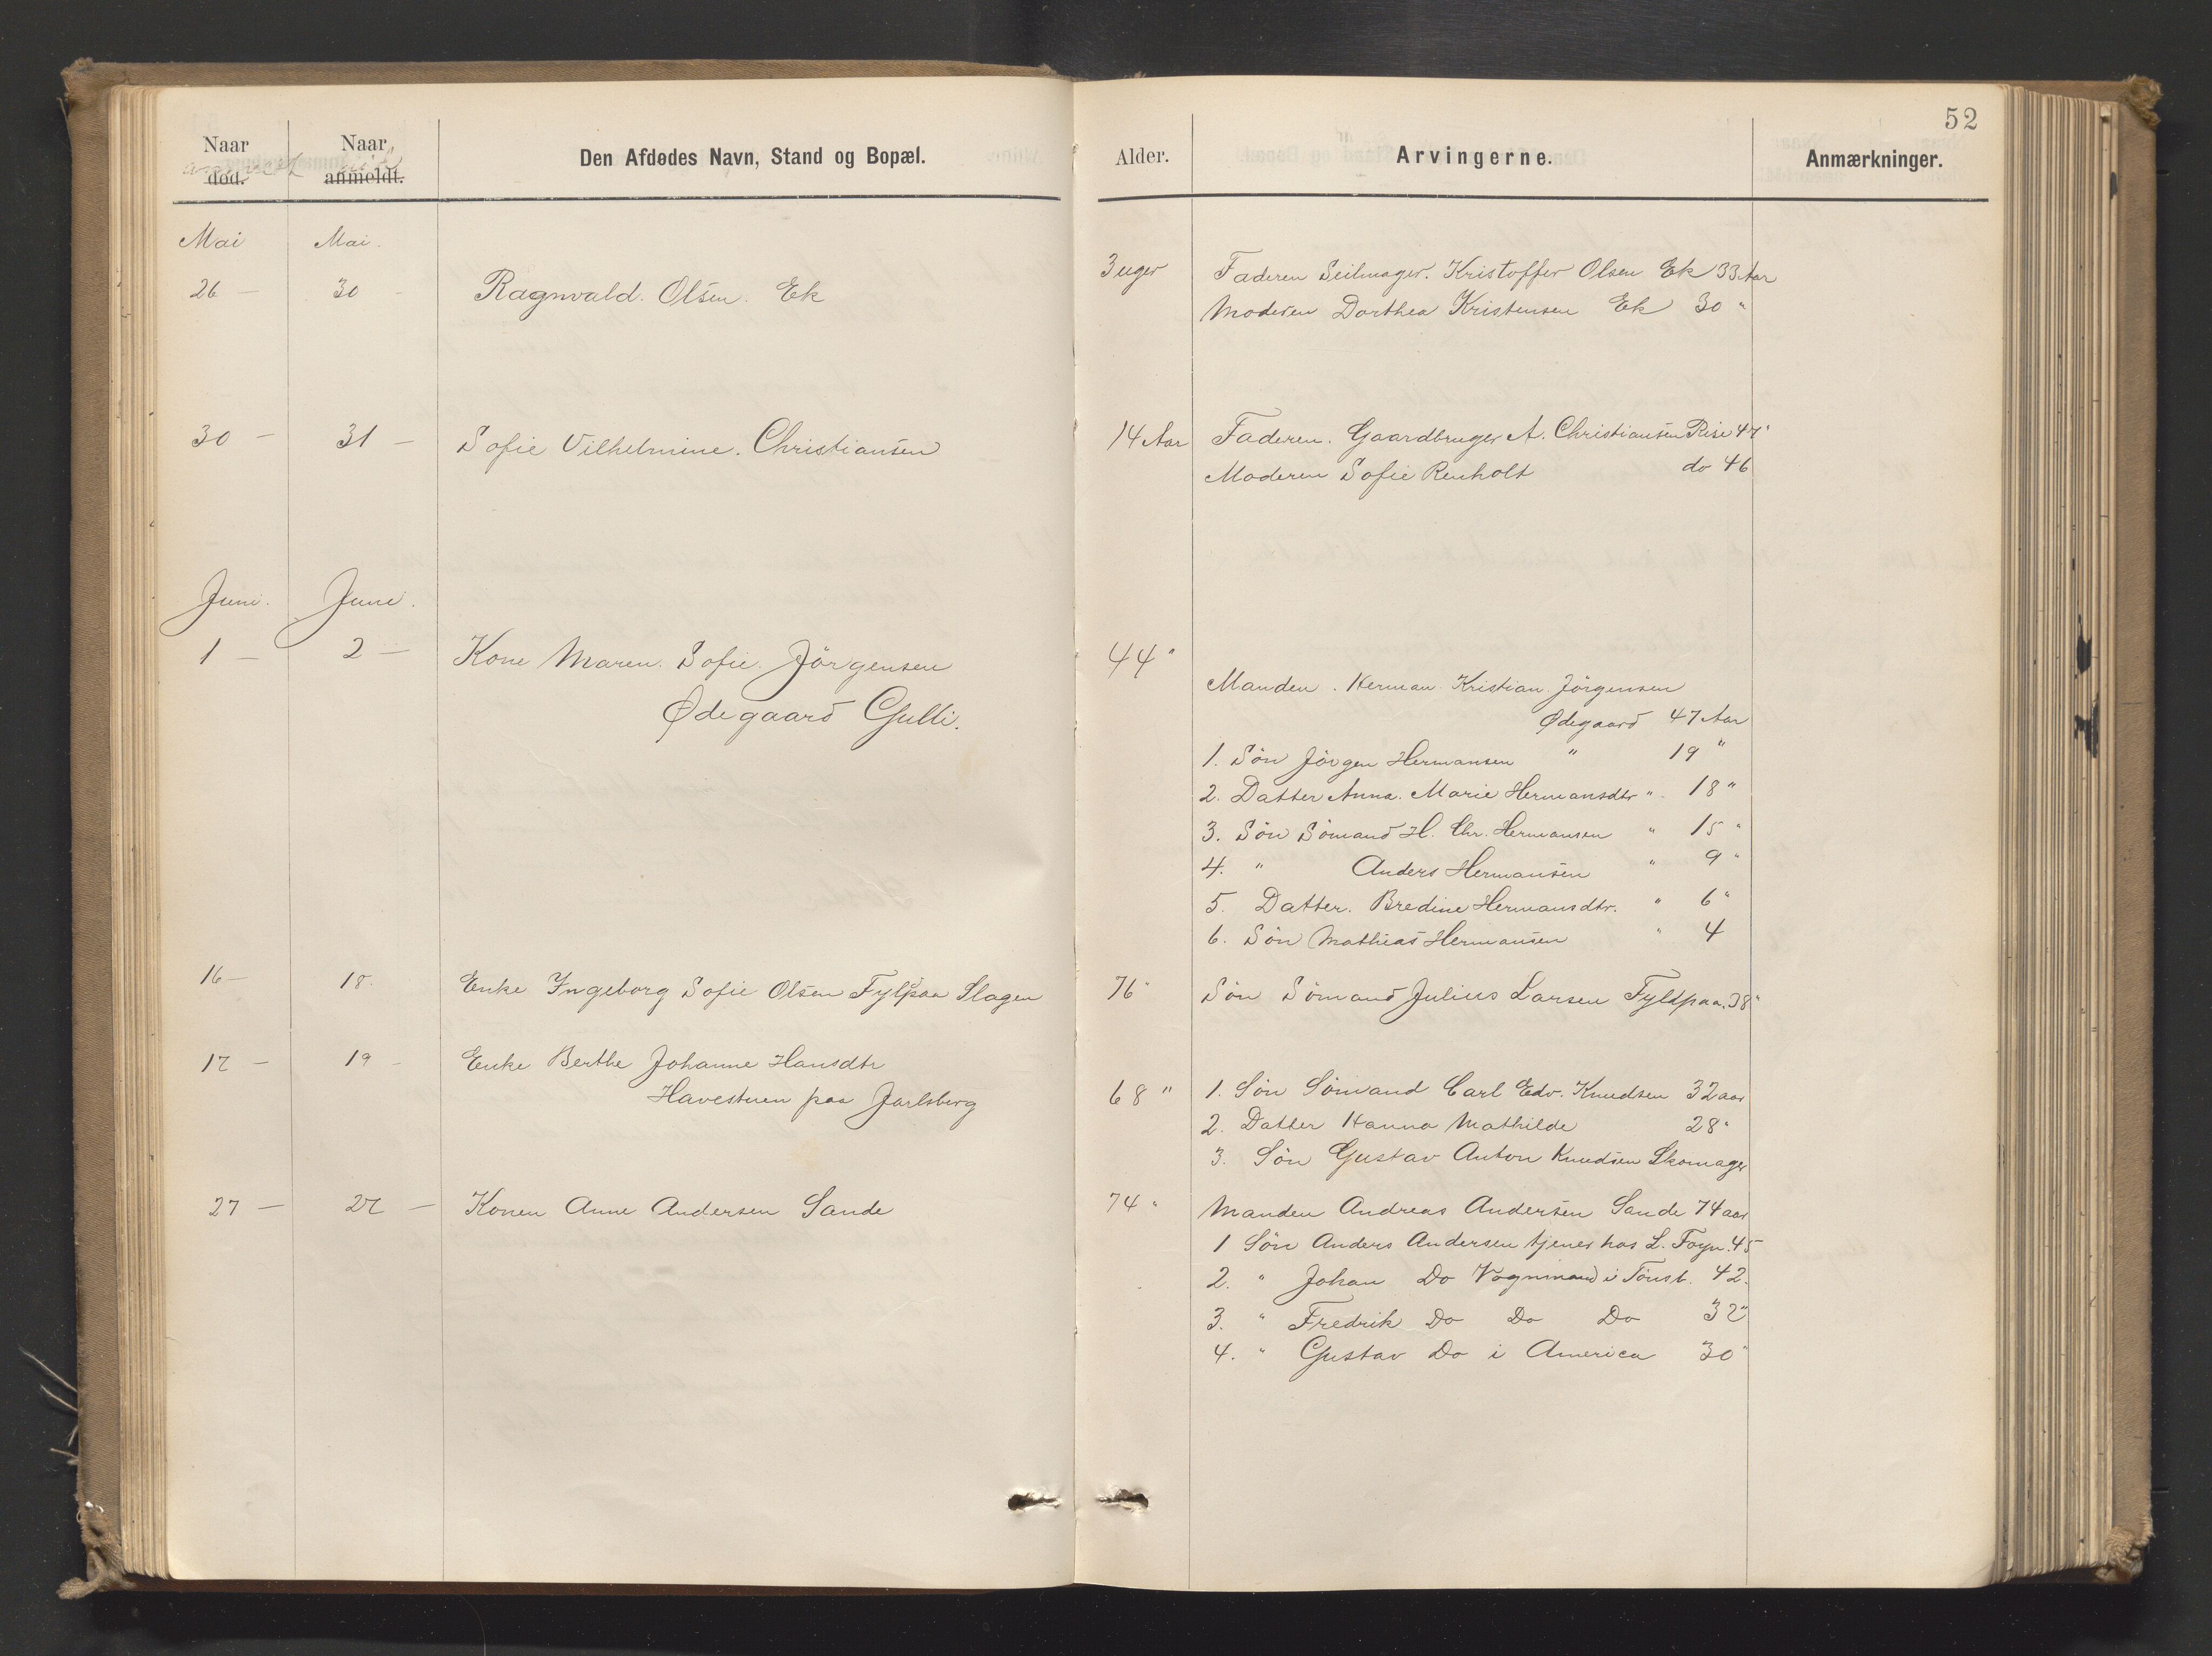 52
Naar død. Naar anmeldt. Den Afdødes Navn, Stand og Bopæl. Alder. Arvingerne. Anmærkninger.
Mai Mai.
26 — 30 - Ragnvald. Olsen. Ek 3 uger Faderen Seilmager. Kristoffer Olsen Ek 33 Aar
Moderen Dorthea Kristensen Ek 30 "
30 — 31 — Sofie Vilhelmine. Christiansen 14 Aar Faderen. Gaardbruger A. Christiansen Rise 47"
Moderen Sofie Renholt do 46
Juni. Juni.
1 — 2 — Kone Maren. Sofie. Jörgensen 44 "
Ødegaard Gulli.
Manden. Herman Kristian Jörgensen
Ødegaard 47 Aar
1. Sön Jörgen Hermansen " 19 "
2. Datter Anna. Marie Hermansdtr " 18 "
3. Sön Sömand H. Chr. Hermansen " 15 "
4. " Anders Hermansen " 9 "
5. Datter. Bredine Hermansdtr. " 6 "
6. Sön Mathias Hermansen " 4
16 — 18. Enke Ingeborg Sofie Olsen Fylpaa Slagen 76 " Sön Sömand Julius Larsen Fyldpaa. 38 "
17 — 19 - Enke Berthe Johanne Hansdtr
Havestuen paa Jarlsberg 68 " 1. Sön Sömand Carl Edv. Knudsen 32 aar
2. Datter Hanna Mathilde 28 "
3. Sön Gustav Anton Knudsen Skomager
27 — 27 — Konen Anne Andersen Sande 74 " Manden Andreas Andersen Sande 74 aar
1 Sön Anders Andersen tjener hos L. Foyn. 45
2. " Johan Do Vognmand i Tönsb. 42.
3. " Fredrik Do Do Do 32 "
4. " Gustav Do i America 30 "